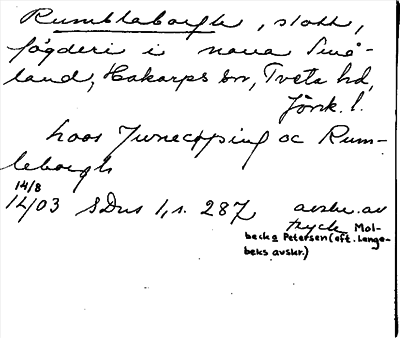 Rumblaborgh, slott,
fögderi i norra Små-
land, Hakarps sn, Tveta hd,
Jönk. l.
hoos Junecøping oc Rum-
leborgh
14/8
1403 SDns 1, s. 287 avskr. av
tryck Mol-
bech o Petersen (eft. Lange-
beks avskr.)